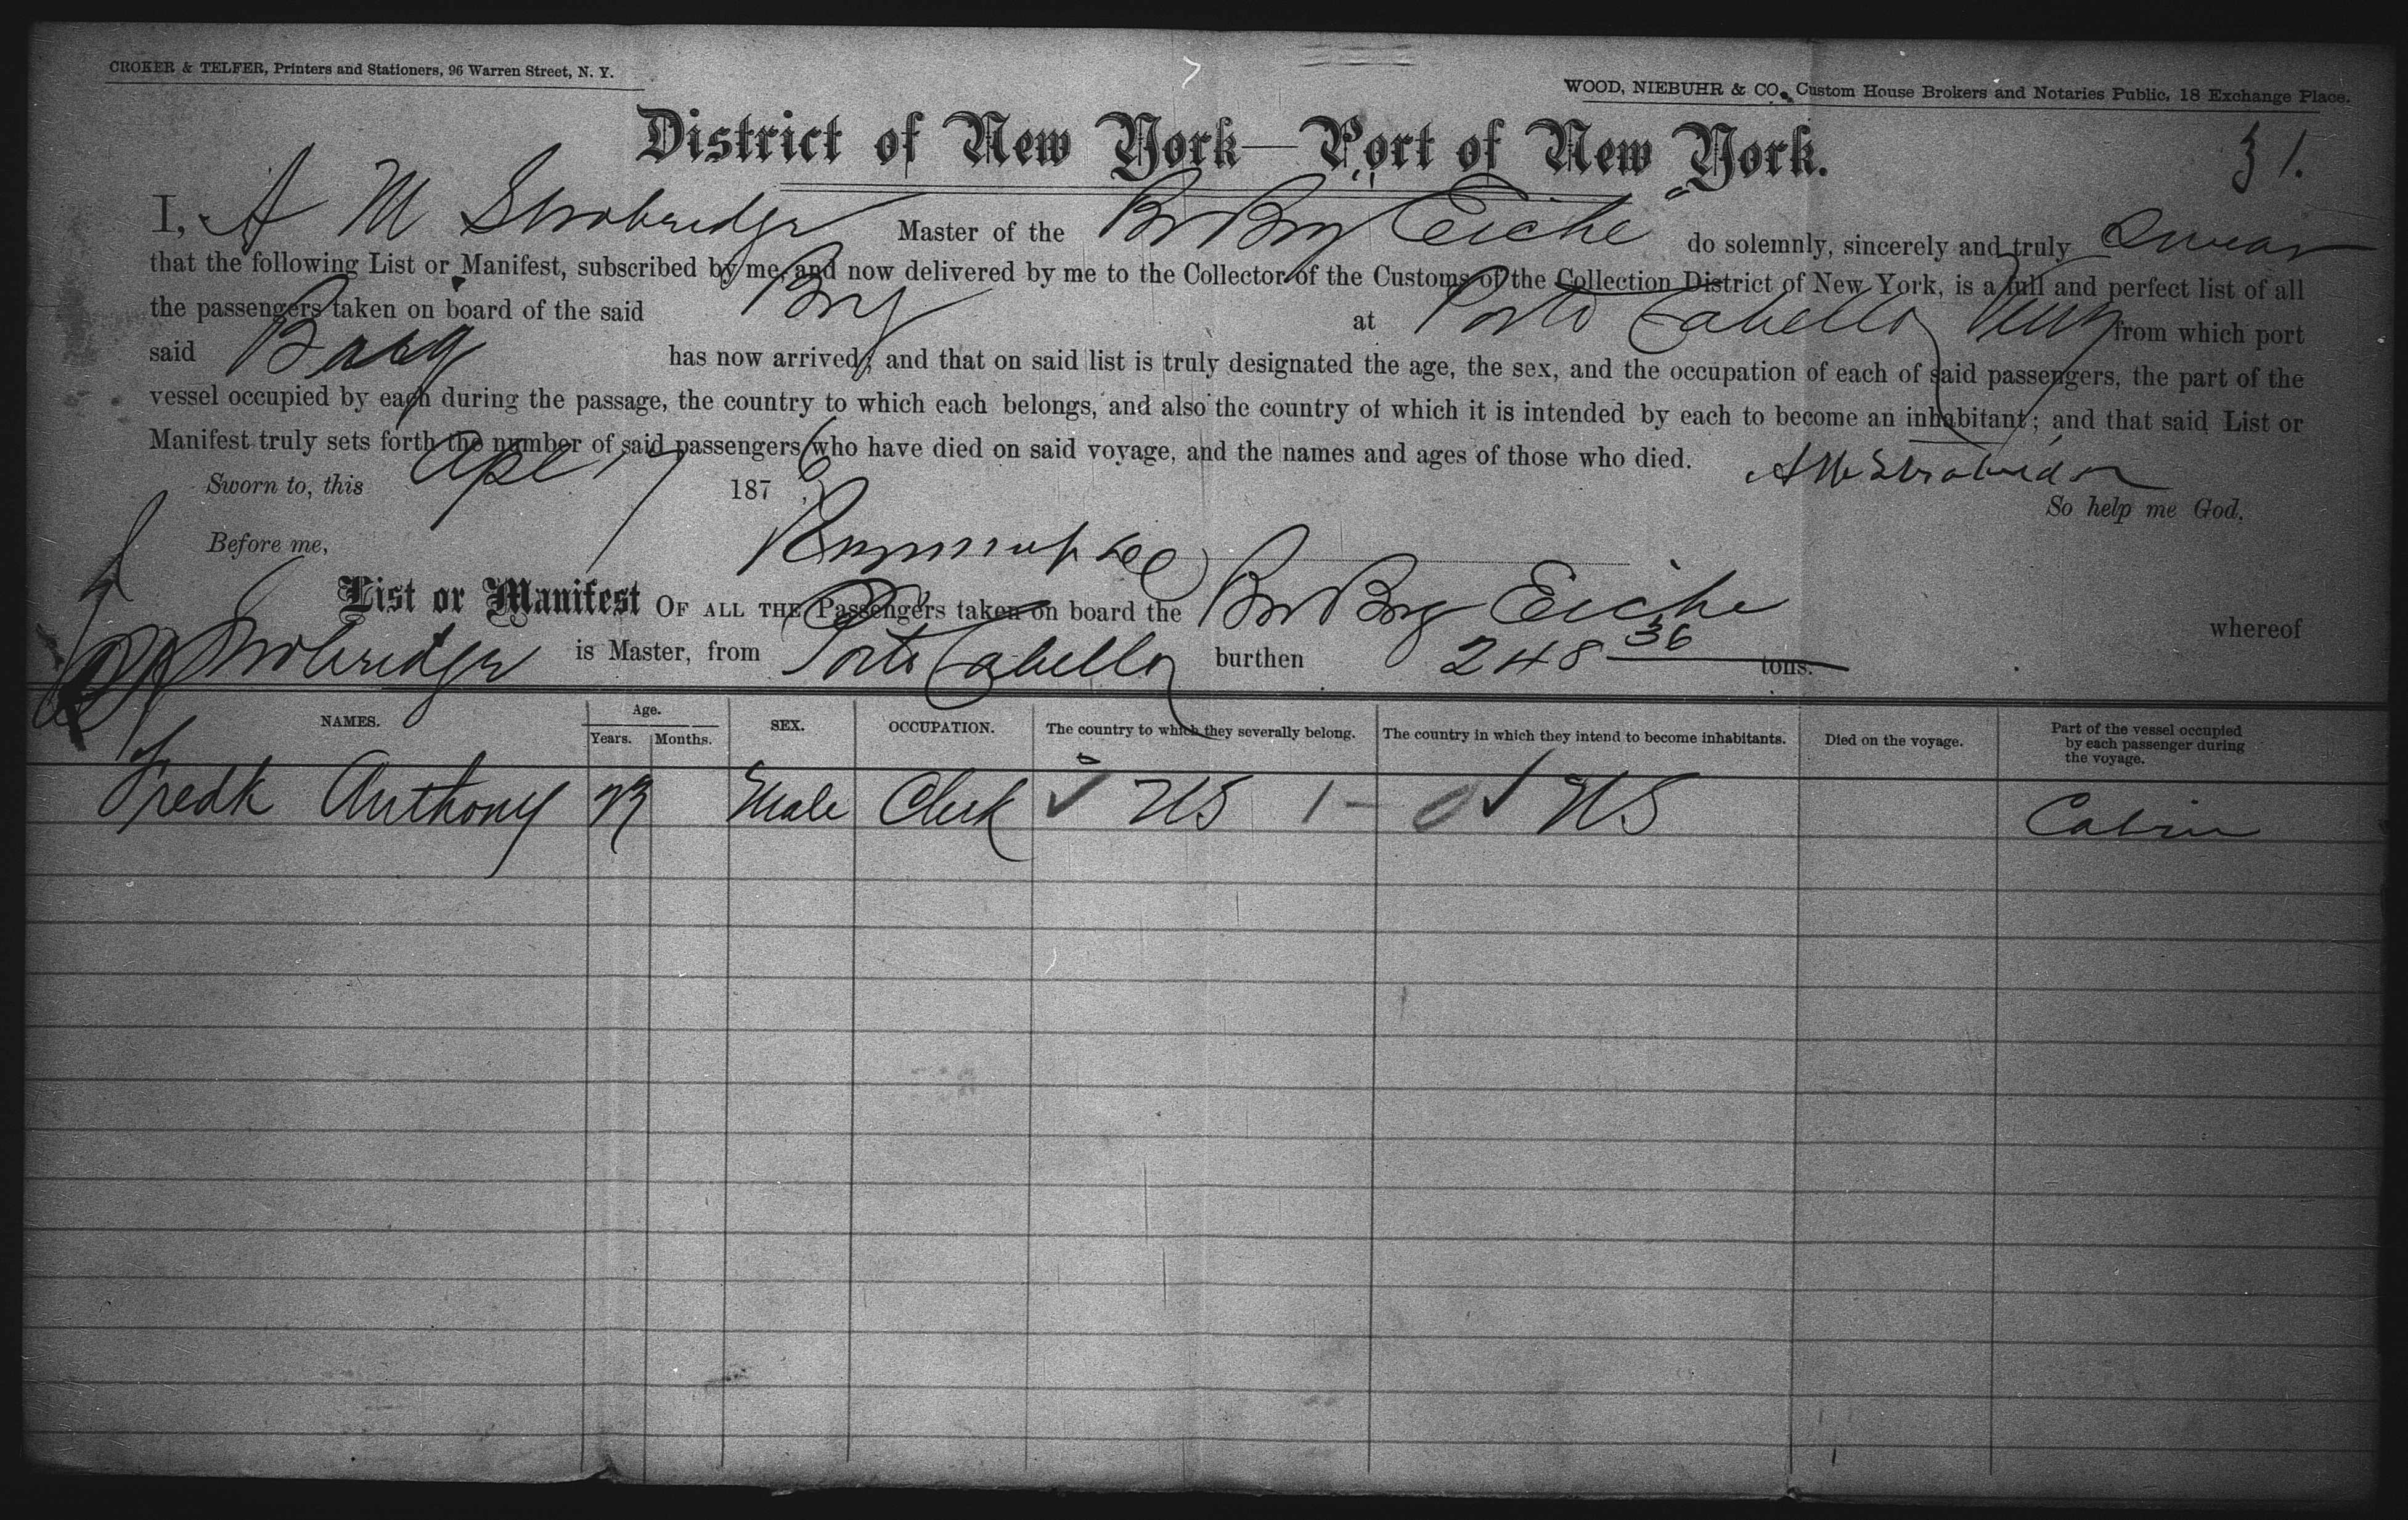 CROKER & TELFER, Printers and Stationers, 96 Warren Street, N. Y.
WOOD, NIEBUHR & CO., Custom House Brokers and Notaries Public, 18 Exchange Place.
District of New York—Port of New York.
31.
I, A M Strobridge Master of the Br Brg "Eiche" do solemnly, sincerely and truly Swear
that the following List or Manifest, subscribed by me, and now delivered by me to the Collector of the Customs of the Collection District of New York, is a full and perfect list of all
the passengers taken on board of the said Brg at Porto Cabello from which port
said Barq has now arrived; and that on said list is truly designated the age, the sex, and the occupation of each of said passengers, the part of the
vessel occupied by each during the passage, the country to which each belongs, and also the country of which it is intended by each to become an inhabitant; and that said List or
Manifest truly sets forth the number of said passengers who have died on said voyage, and the names and ages of those who died.
Sworn to, this Apl 17 1876 A M Strobridge
So help me God,
Before me,
List or Manifest OF ALL THE Passengers taken on board the Br Brg Eiche whereof
Strobridge is Master, from Porto Cabello burthen 248 36 tons.
NAMES. Age. Years. Months. SEX. OCCUPATION. The country to which they severally belong. The country in which they intend to become inhabitants. Died on the voyage. Part of the vessel occupied by each passenger during the voyage.
Fredk Anthony 23 Male Clerk US 1 US Cabin